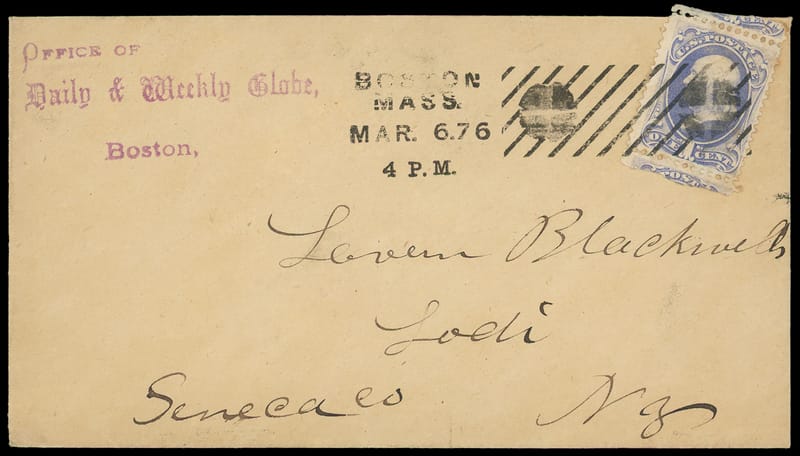 OFFICE OF
Daily & Weekly Globe,
Boston,
BOSTON
MASS.
MAR. 6.76
4 P.M.
U.S. POSTAGE
ONE CENT
Blackwell
Lodi
Seneca co N Y